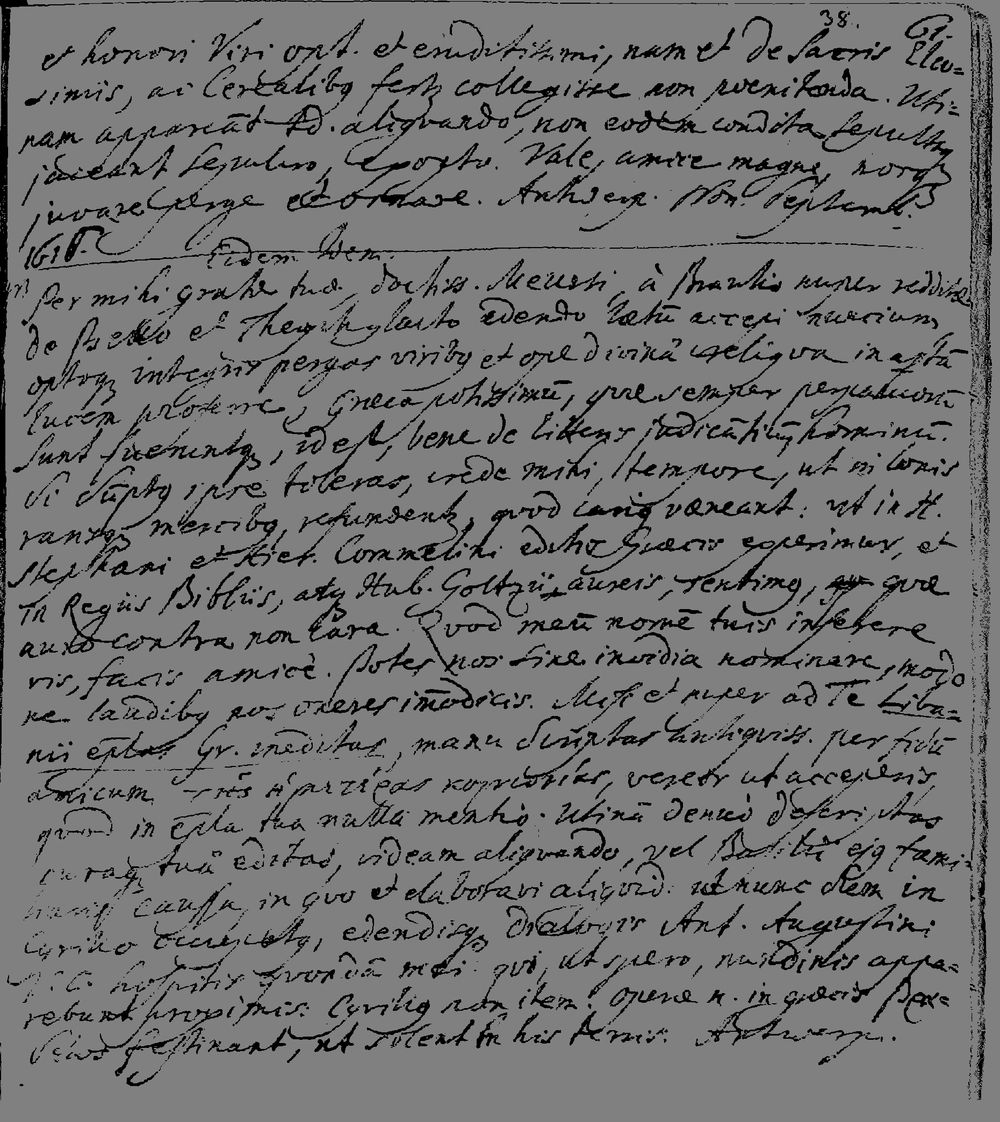 38. 61.
et honori Viri opt. et eruditissimi, nam et de Sacris Eleu=
siniis, ac Cerealibq festz collegisse non poenitenda. Uti=
nam appareāt Ad. aliquando, non eodem condita sepultq
jaceant sepulcro, exopto. Vale, amice magne, nosqz
juvare perge et ornare. Antwerp. Non. Septemb.
1615.
Eidem Idem.
Per mihi gratæ tuæ, doctiss. Meursi, à nuper redditæ
de Psello et Theophylacto edendo lætū accepi nuncium,
optoqz integris pergas viribq et ope divinâ reliqua in aptā
lucem proferre, Græca potissimū, quæ semper
sunt fueruntqz, id est, bene de litteris judicātiū hominū.
Si sūptq ipse toleras, crede mihi, tempore, ut in bonis
mercibq, refundentz, quod cariq væneant: ut in H.
Stephani et Hier. Commelini editis Græcis experimur, et
in Regiis Bibliis, atqz Hub. Goltzii aureis, sentimq, quæ
auro contra non cara. Quod meū nomē tuis inserere
vis, facis amicè. Potes nos sine invidia nominare, modo
ne laudibq nos oneres im̄odicis. Misi et nuper ad Te Liba=
nii ep̄las Gr. ineditas, manu scriptas antiquiss. per fidū
amicum vereor ut acceperis,
quod in ep̄la tua nulla mentio. Utinā denuò descriptas
curaqz tuâ editas, videam aliquando, vel Basilii ejq fami-
liaris caussa, in quo et elaboravi aliquid: ut nunc idem in
Cyrillo occupatq, edendisqz Dialogis Ant. Augustini
V. C. hospitis quondā mei: qui, ut spero, nundinis appa=
rebunt proximis: Cyrillq non item: operæ n. in græcis
festinant, ut solent in his terris. Antwerp.